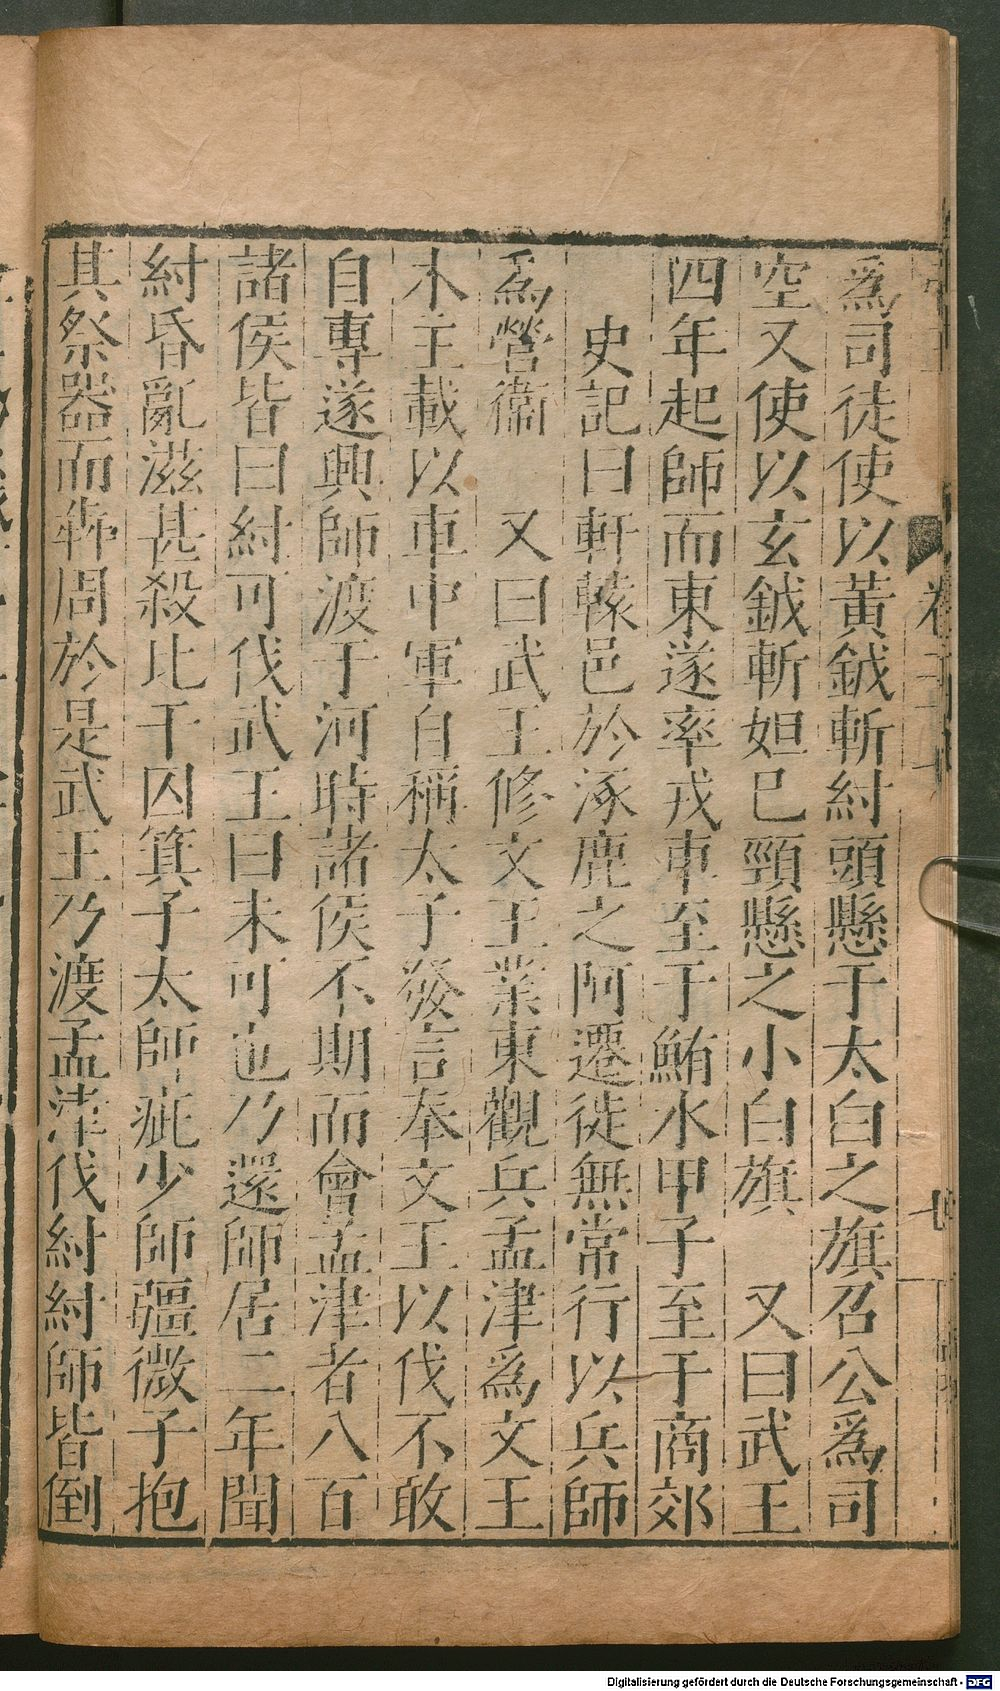 爲司徒使以黃鉞斬紂頭懸于太白之旗召公爲司
空又使以玄鉞斬妲己頸懸之小白旗　又曰武王
四年起師而東遂率戎車至于鮪水甲子至于商郊
史記曰軒轅邑於涿鹿之阿遷徙無常行以兵師
爲營衞　又曰武王修文王業東觀兵孟津爲文王
木主載以車中軍自稱太子發言奉文王以伐不敢
自專遂興師渡于河時諸侯不期而會孟津者八百
諸侯皆曰紂可伐武王曰未可也乃還師居二年聞
紂昏亂滋甚殺比干囚箕子太師疵少師疆微子抱
其祭器而犇周於是武王乃渡孟津伐紂紂師皆倒
卷二百
七
Digitalisierung gefördert durch die Deutsche Forschungsgemeinschaft - DFG